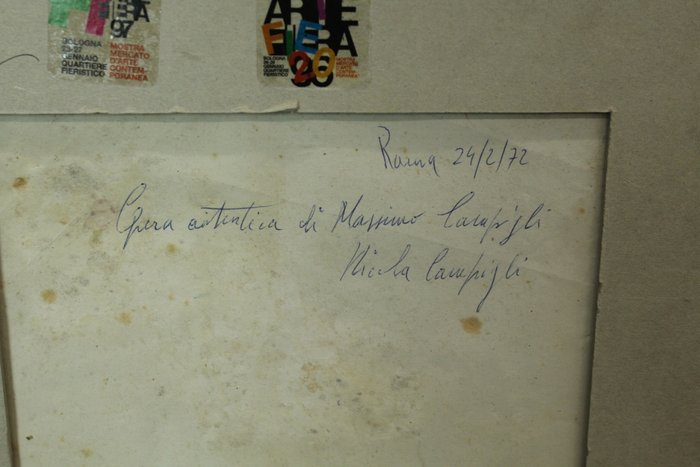 FIERA
97
BOLOGNA
23-27
GENNAIO
QUARTIERE
FIERISTICO
MOSTRA
MERCATO
D'ARTE
CONTEM-
PORANEA
ARTE
FIERA
20
BOLOGNA
GENNAIO
QUARTIERE
FIERISTICO
MOSTRA
MERCATO
D'ARTE
CONTEM-
PORANEA
Roma 24/2/72
Opera autentica di Massimo Campigli
Nicola Campigli